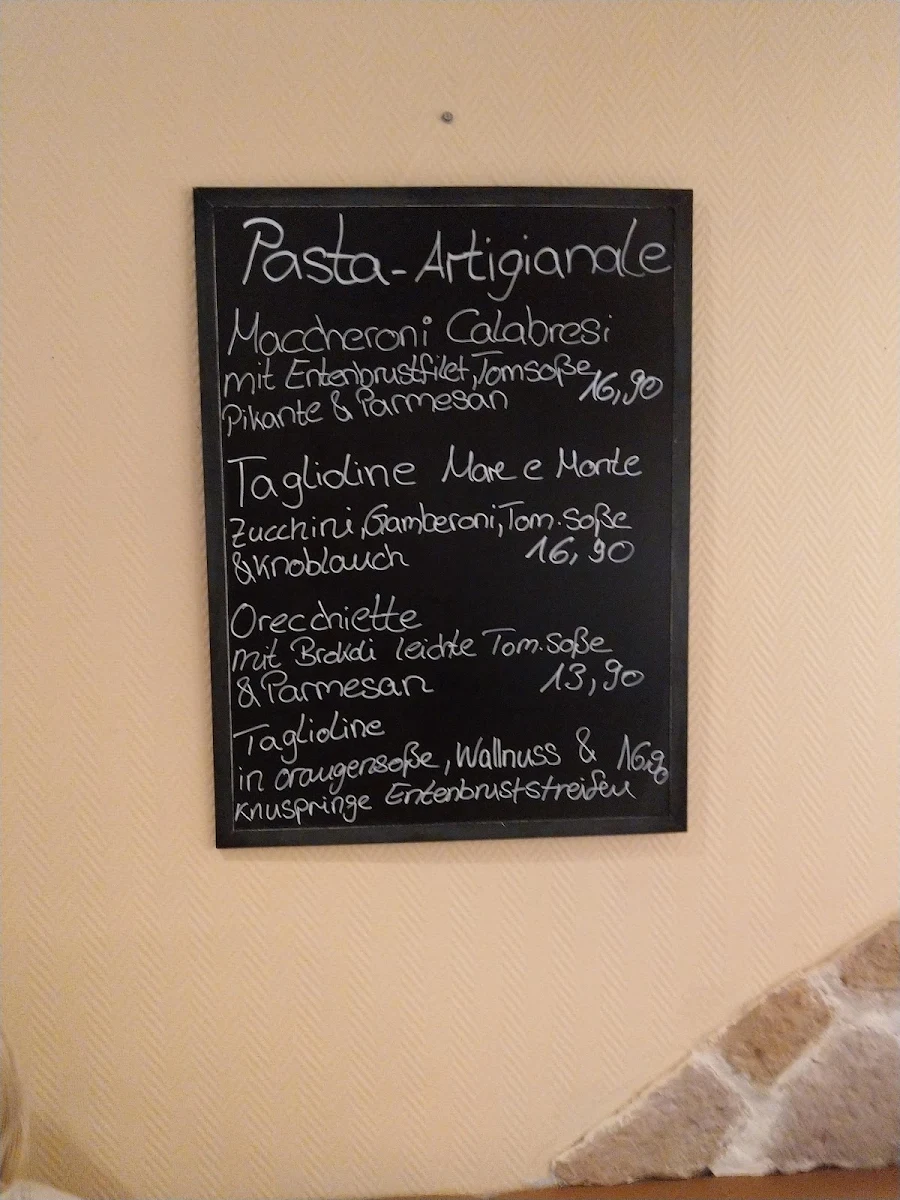 Pasta-Artigianale
Maccheroni Calabresi
mit Entenbrustfilet, Tomsoße
16,90
Pikante & Parmesan
Taglioline Mare e Monte
Zucchini, Gamberoni, Tom.soße
&Knoblauch 16,90
Orecchiette
mit Brokoli leichte Tom.soße
& Parmesan 13,90
Taglioline
in orangensoße, Wallnuss & 16,90
Knuspringe Entenbruststreifen